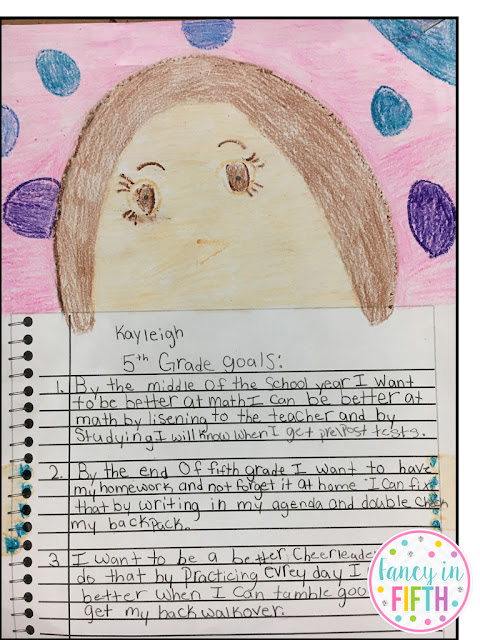 Kayleigh
5th Grade goals:
1. By the middle of the school year I want
to be better at math I can be better at
math by lisening to the teacher and by
studying I will know when I get pre/post tests.
2. By the end of fifth grade I want to have
my homework and not forget it at home I can fix
that by writing in my agenda and double chek
my backpack.
3 I want to be a better Cheerleade
do that by Practicing evrey day I
better when I can tumble goo
get my back walkover.
fancy in
FIFTH